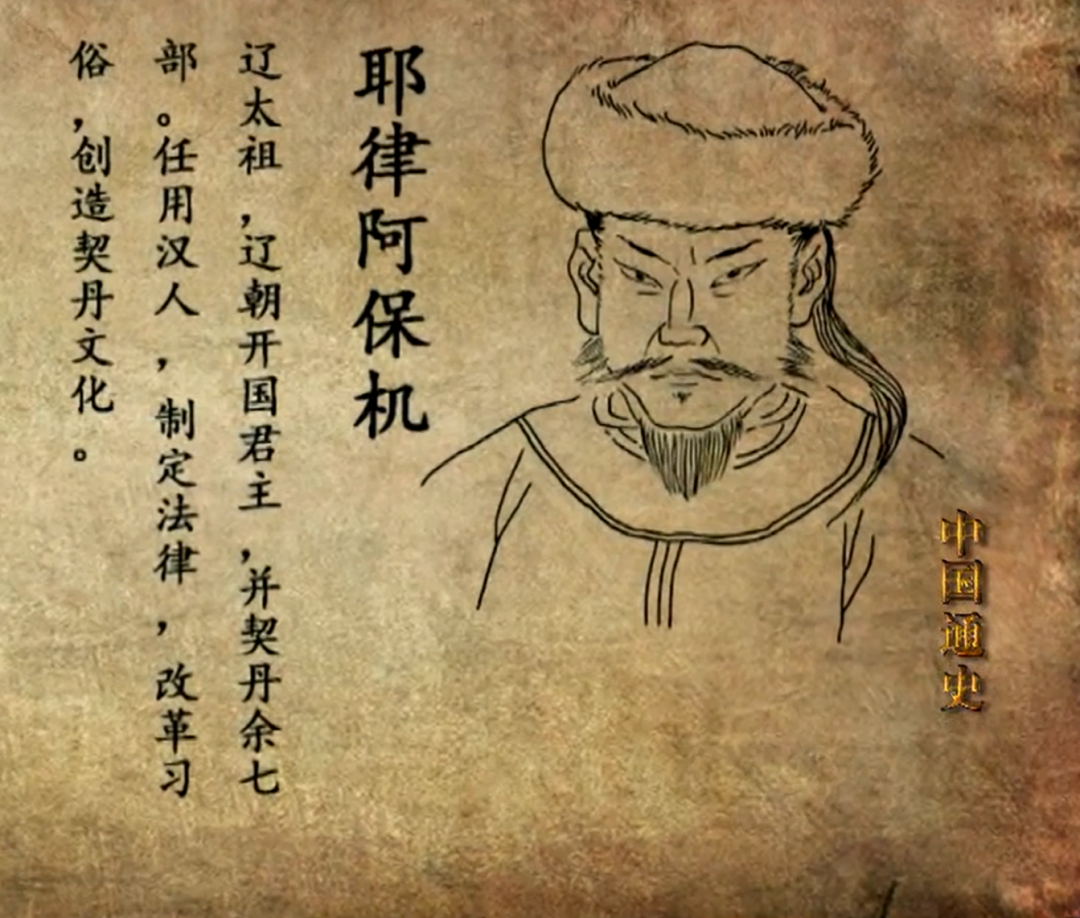 耶律阿保机
辽太祖,辽朝开国君主,并契丹余七
部。任用汉人,制定法律,改革习
俗,创造契丹文化。
中国通史